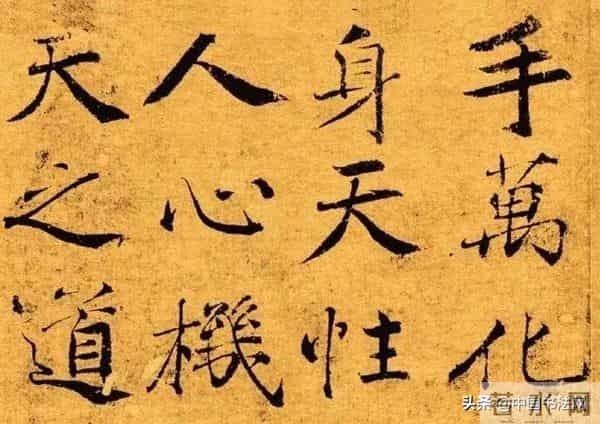 手萬化
身天性
人心機
天之道
头条 @中国书法网